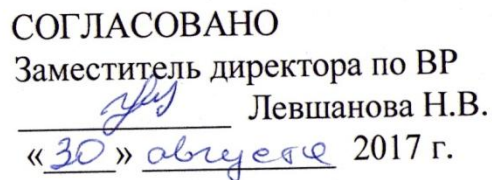 СОГЛАСОВАНО
Заместитель директора по ВР
Левшанова Н.В.
«30» августа 2017 г.